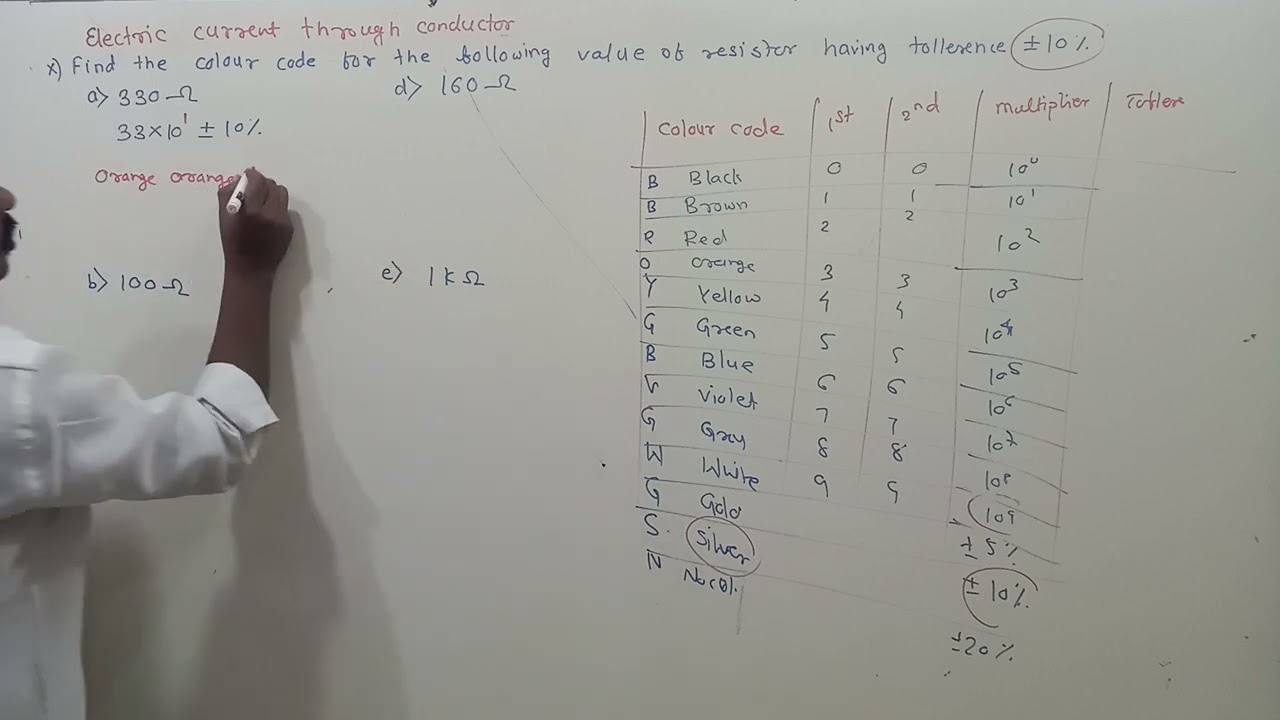 Electric current through conductor
x) Find the colour code for the following value of resistor having tollerence ±10%
a) 330 Ω
d) 160 Ω
33×10¹ ± 10%
Orange orange
b) 100 Ω
e) 1 k Ω
Colour code 1st 2nd multiplier
B Black 0 0 10⁰
B Brown 1 1 10¹
R Red 2 2 10²
O orange 3 3 10³
Y Yellow 4 4 10⁴
G Green 5 5 10⁵
B Blue 6 6 10⁶
V Violet 7 7 10⁷
G Gray 8 8 10⁸
W White 9 9 10⁹
G Gold ± 5%
S. Silver ± 10%
N ±20%